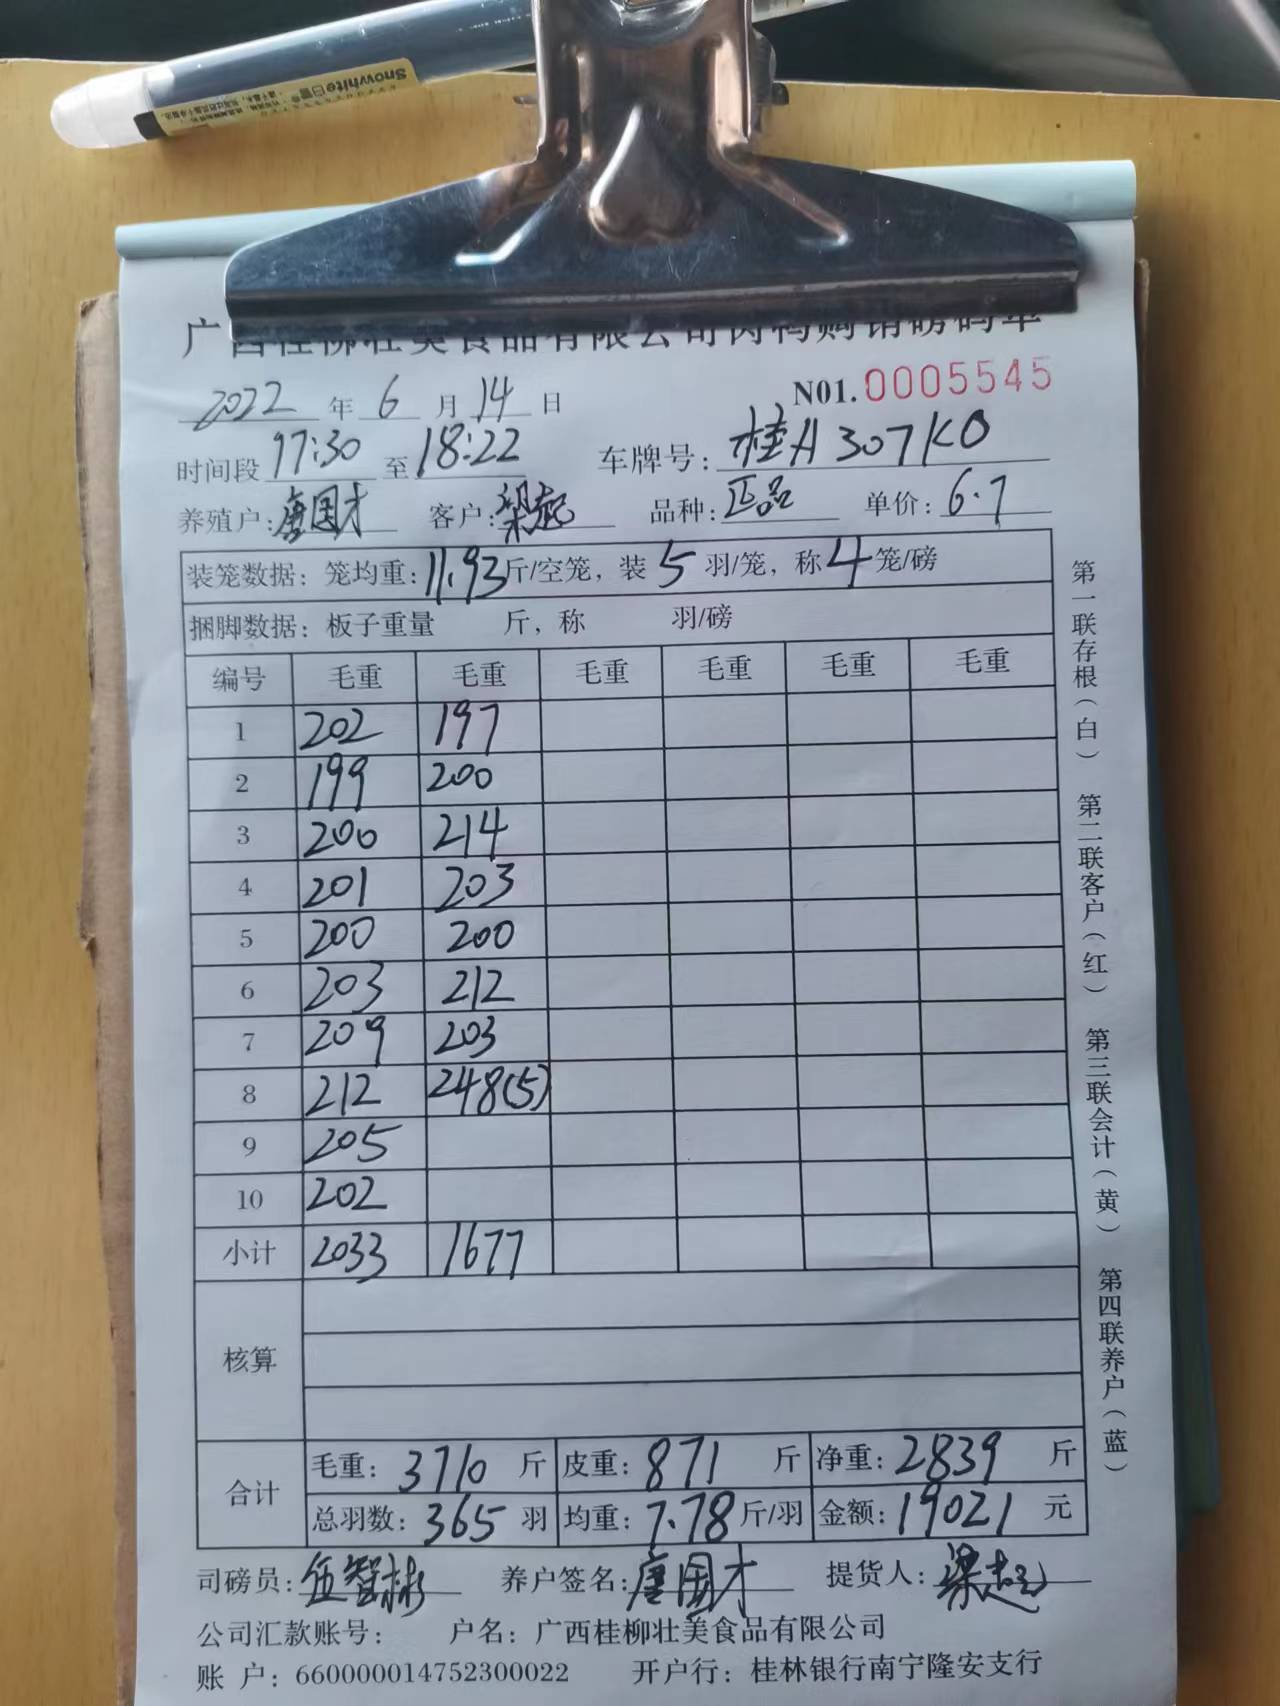 Snowhite白雪
广西桂柳壮美食品有限公司肉鸭购销磅码单
2022年6月14日 N01.0005545
时间段17:30至18:22 车牌号:桂A307K0
养殖户:唐国才 客户:梁起 品种:正品 单价:6.7
装笼数据:笼均重:11.93斤/空笼,装5羽/笼,称4笼/磅
捆脚数据:板子重量 斤,称 羽/磅
编号 毛重 毛重 毛重 毛重 毛重 毛重
1 202 197
2 199 200
3 200 214
4 201 203
5 200 200
6 203 212
7 209 203
8 212 248(5)
9 205
10 202
小计 2033 1677
核算
合计 毛重:3710斤 皮重:871斤 净重:2839斤
总羽数:365羽 均重:7.78斤/羽 金额:19021元
司磅员:伍智彬 养户签名:唐国才 提货人:梁起
公司汇款账号: 户名:广西桂柳壮美食品有限公司
账 户:660000014752300022 开户行:桂林银行南宁隆安支行
第一联存根(白) 第二联客户(红) 第三联会计(黄) 第四联养户(蓝)